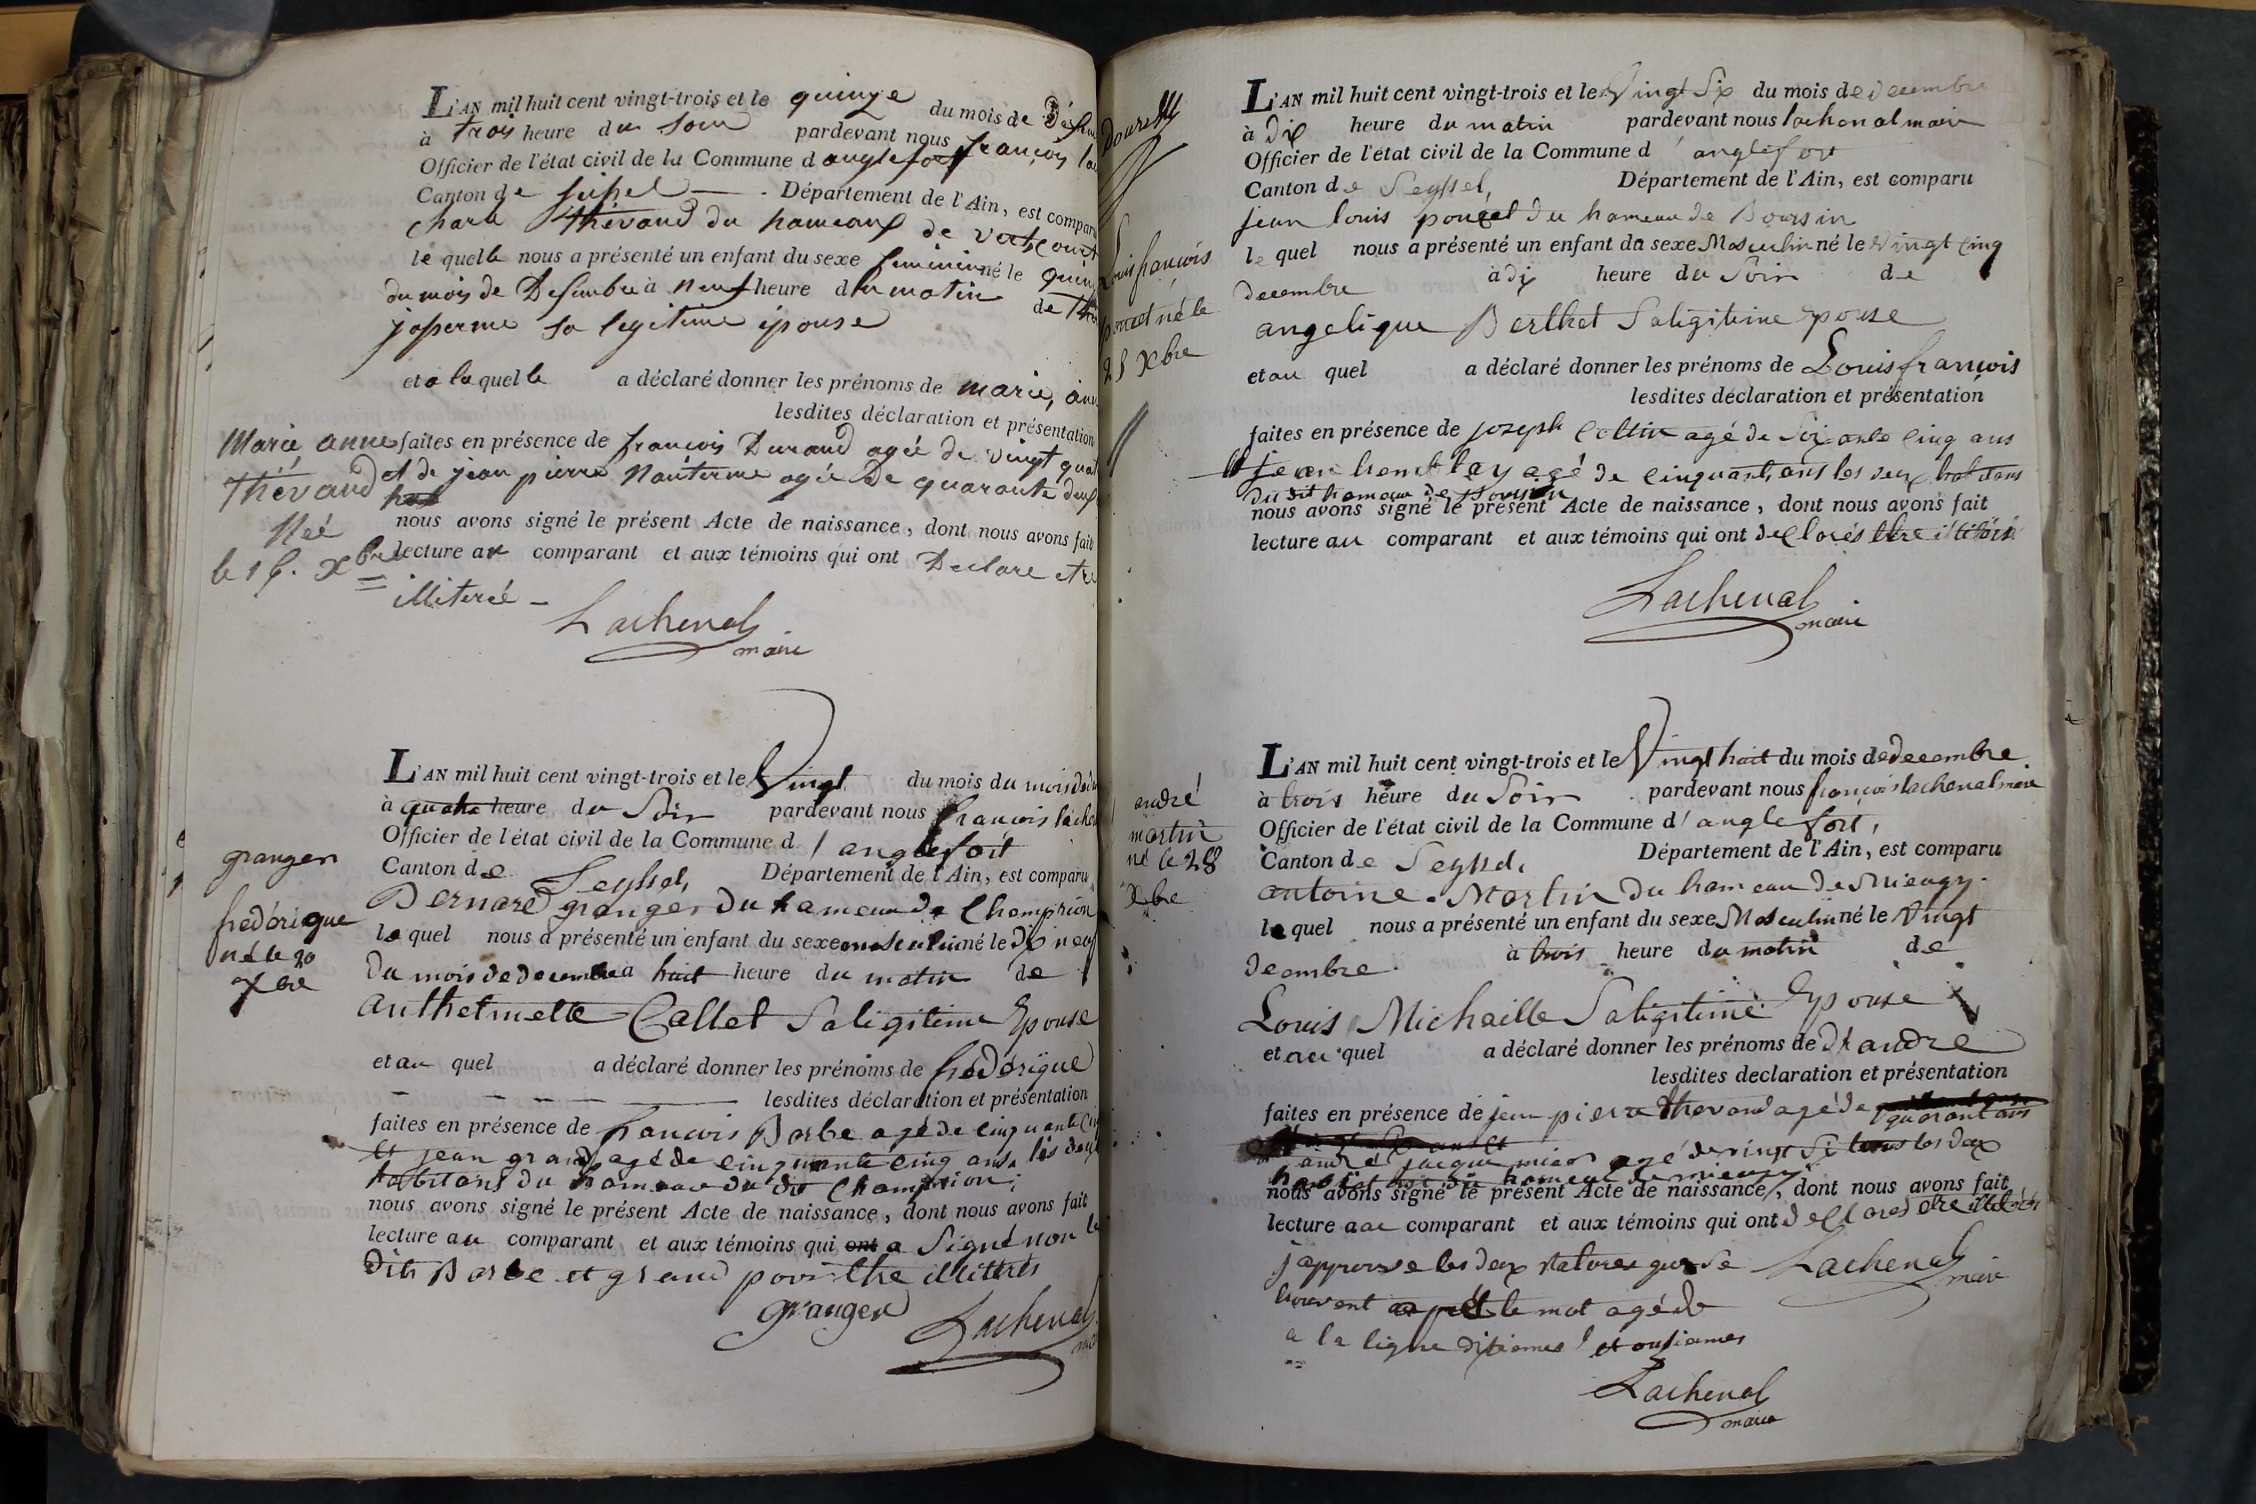 L'AN mil huit cent vingt-trois et le quinze du mois de
à trois heure du soir pardevant nous françois
Officier de l'état civil de la Commune d anglefort
Canton de seissel Département de l'Ain, est comparu
Thévand du hameaux de
le quelle nous a présenté un enfant du sexe feminin né le
du mois de Desembre à neuf heure du matin de
josperme sa legitime épouse
et a la quelle a déclaré donner les prénoms de marie, ann
lesdites déclaration et présentation
faites en présence de françois Durand agée de vingt
et de jean pierre Nanterme agée De quarante deux
nous avons signé le présent Acte de naissance, dont nous avons fait
lecture au comparant et aux témoins qui ont Declare etre
illiteré
Lachenal
maire
Marie anne
Thévand
Née
le 15. Xbre
L'AN mil huit cent vingt-trois et le Vingt du mois du mois de
à quatre heure du Soir pardevant nous francois
Officier de l'état civil de la Commune d'anglefort
Canton de Seyssel, Département de l'Ain, est comparu
Bernard granger du hameau de Champrion
le quel nous a présenté un enfant du sexe masculin né le dix neuf
du mois de decembre à huit heure du matin de
anthelmette Callet Saligitime Epouse
et au quel a déclaré donner les prénoms de frédérique
lesdites déclaration et présentation
faites en présence de francois Barbe agé de cinquante
et jean grand agé de cinquante cinq ans, les deux
habitans du hameau du dit Champrion;
nous avons signé le présent Acte de naissance, dont nous avons fait
lecture au comparant et aux témoins qui ont a Signé non
dits Barbe et grand pour être illittrés
granger Lachenal
granger
frédérique
né le 20
Xbre
louis françois
poncet né le
25 Xbre
L'AN mil huit cent vingt-trois et le Vingt Six du mois de decembre
à dix heure du matin pardevant nous lachenal maire
Officier de l'état civil de la Commune d'anglefort
Canton de Seyssel, Département de l'Ain, est comparu
jean louis poncet du hameau de Boursin
le quel nous a présenté un enfant du sexe Masculin né le vingt cinq
decembre à dix heure du Soir de
angelique Berthet Saligitime Epouse
et au quel a déclaré donner les prénoms de Louis françois
lesdites déclaration et présentation
faites en présence de jozeph Collin agé de Soixante cinq ans
agé de cinquante ans les deux
du dit hameau de Boursin
nous avons signé le présent Acte de naissance, dont nous avons fait
lecture au comparant et aux témoins qui ont declarés
Lachenal
maire
andré
martin
né le 28
Xbre
L'AN mil huit cent vingt-trois et le Vingt huit du mois de decembre
à trois heure du Soir pardevant nous françois lachenal maire
Officier de l'état civil de la Commune d'anglefort,
Canton de Seyssel, Département de l'Ain, est comparu
antoine Martin du hameau de Mieugy
le quel nous a présenté un enfant du sexe Masculin né le Vingt
decembre à trois heure du matin de
Louis Michaille Saligitime Epouse
et au quel a déclaré donner les prénoms de d'andre
lesdites declaration et présentation
faites en présence de jean pierre thevand agé de quarant ans
andré jacque agé de vingt Si les deux
nous avons signé le présent Acte de naissance, dont nous avons fait
lecture au comparant et aux témoins qui ont declarés etre
japprouve les deux ratures que se Lachenal
trouvent après le mot agé de maire
a la ligne dixiemes et onsiemes
Lachenal
maire